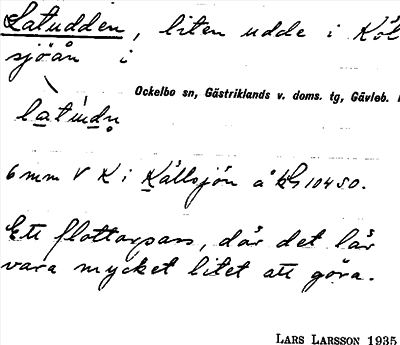 Latudden, liten udde i Köl
sjöån i
Ockelbo sn, Gästriklands v. doms. tg, Gävleb.
6 mm V K i Källsjön å
Ett flottarpass, där det lär
vara mycket litet att göra.
LARS LARSSON 1935